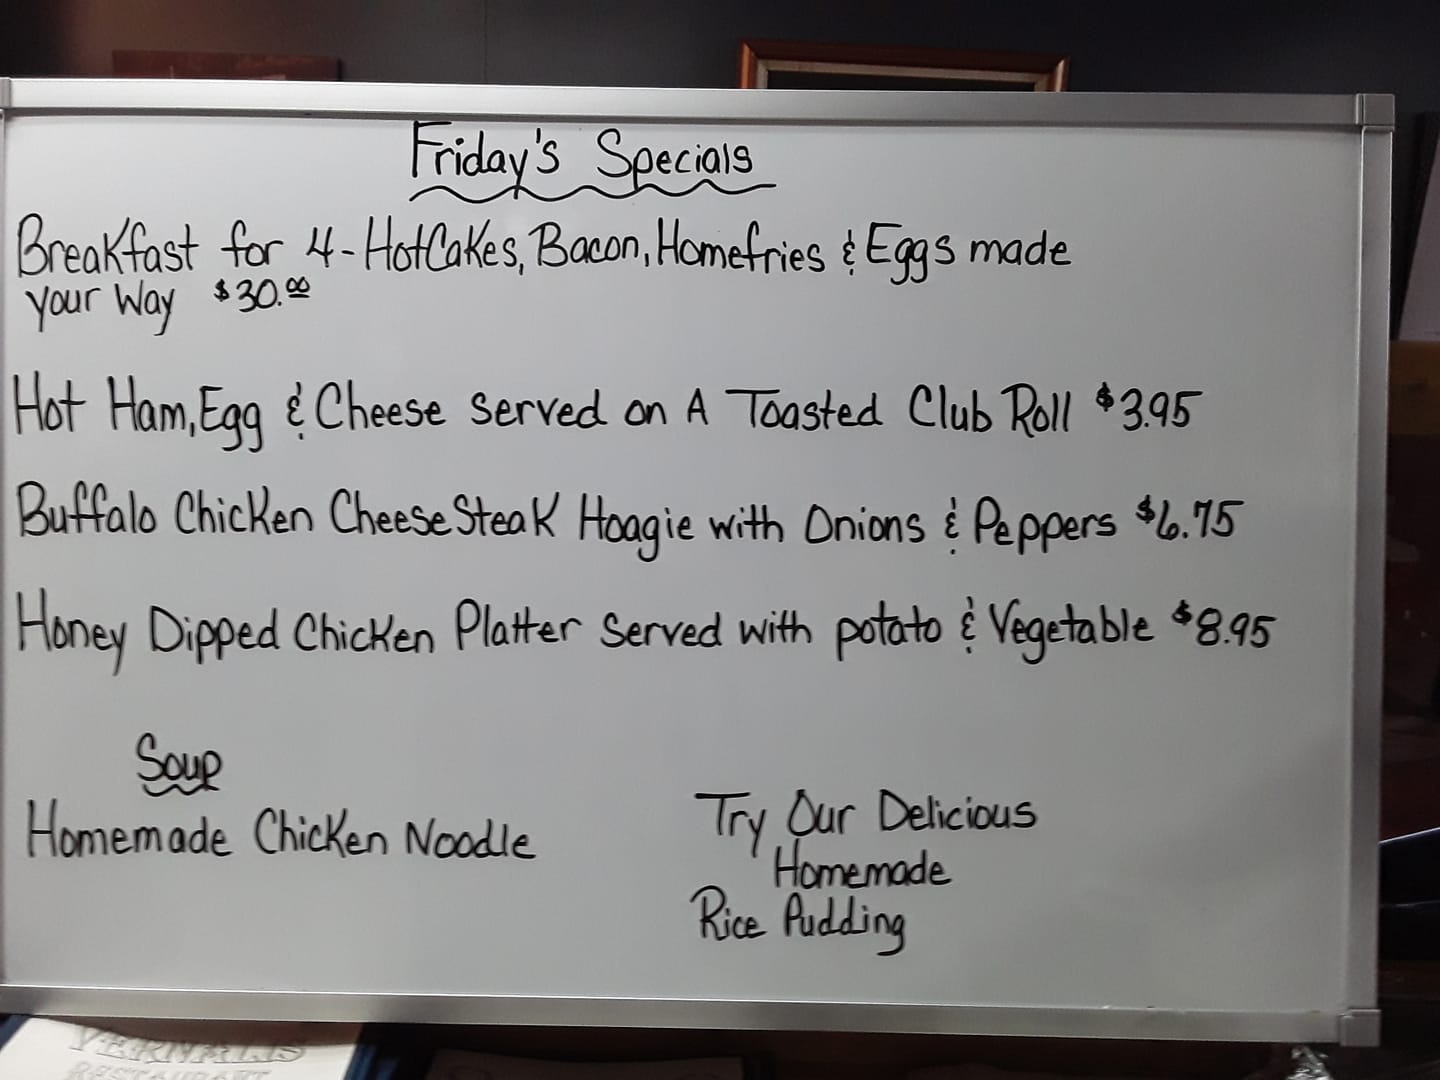 Friday's Specials
Breakfast for 4 - HotCakes, Bacon, Homefries & Eggs made
your Way $30.00
Hot Ham, Egg & Cheese Served on A Toasted Club Roll $3.95
Buffalo Chicken CheeseSteak Hoagie with Onions & Peppers $6.75
Honey Dipped Chicken Platter Served with potato & Vegetable $8.95
Soup
Homemade Chicken Noodle
Try Our Delicious
Homemade
Rice Pudding
RESTAURANT